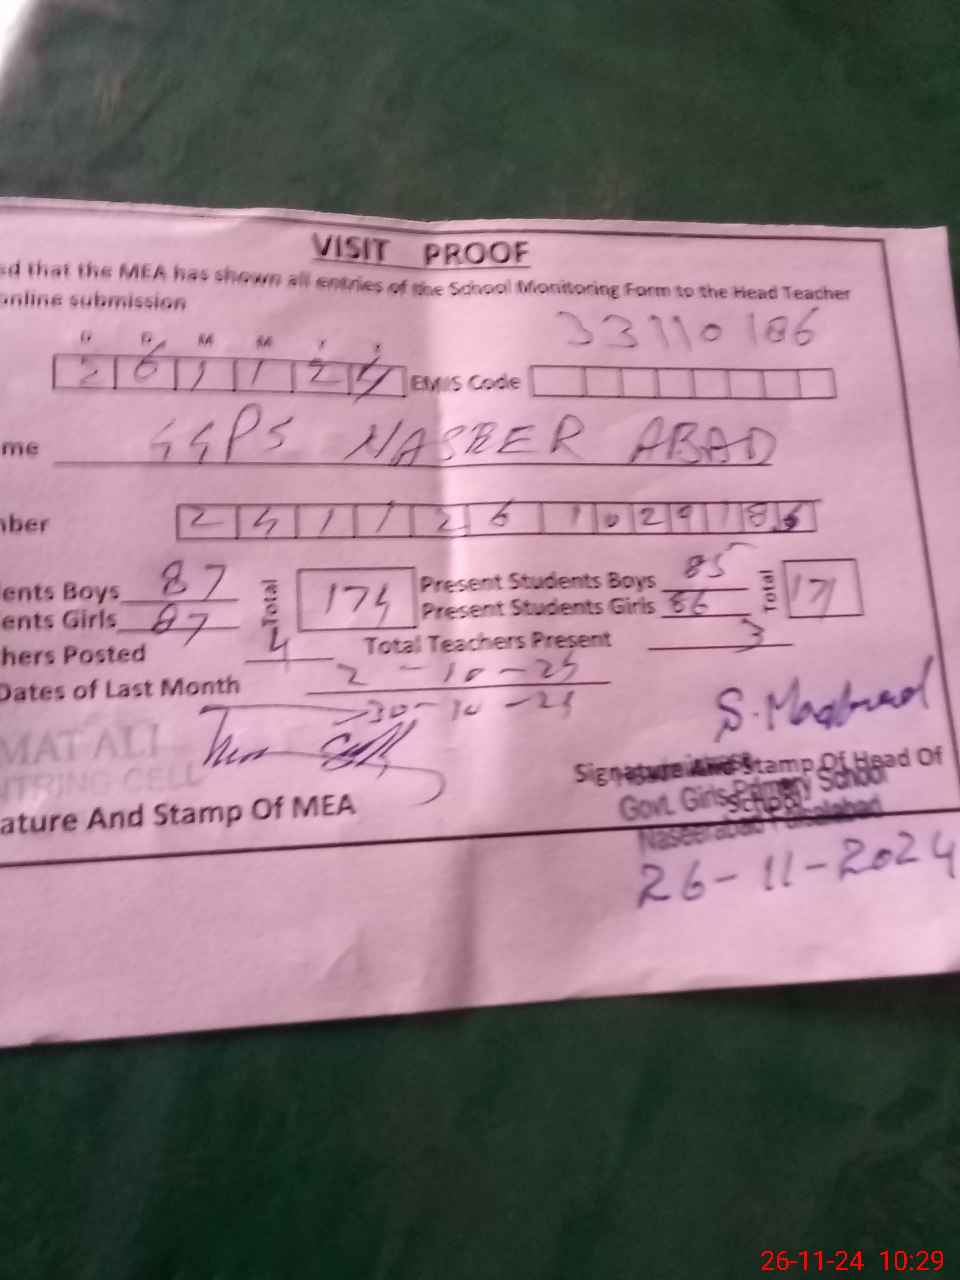 VISIT PROOF
ed that the MEA has shown all entries of the School Monitoring Form to the Head Teacher
online submission
33110186
D D M M Y Y
26 11 24 EMIS Code
me GGPS NASEER ABAD
ber 241126 1029186
ents Boys 87 Total 174 Present Students Boys 85 Total 171
ents Girls 87 Present Students Girls 86
hers Posted 4 Total Teachers Present 3
Dates of Last Month 2-10-24
30-10-24
MAT ALI
NTRING CELL
ature And Stamp Of MEA
Signature And Stamp Of Head Of
School
Govt. Girls Primary School
Naseerabad Faisalabad
26-11-2024
26-11-24 10:29